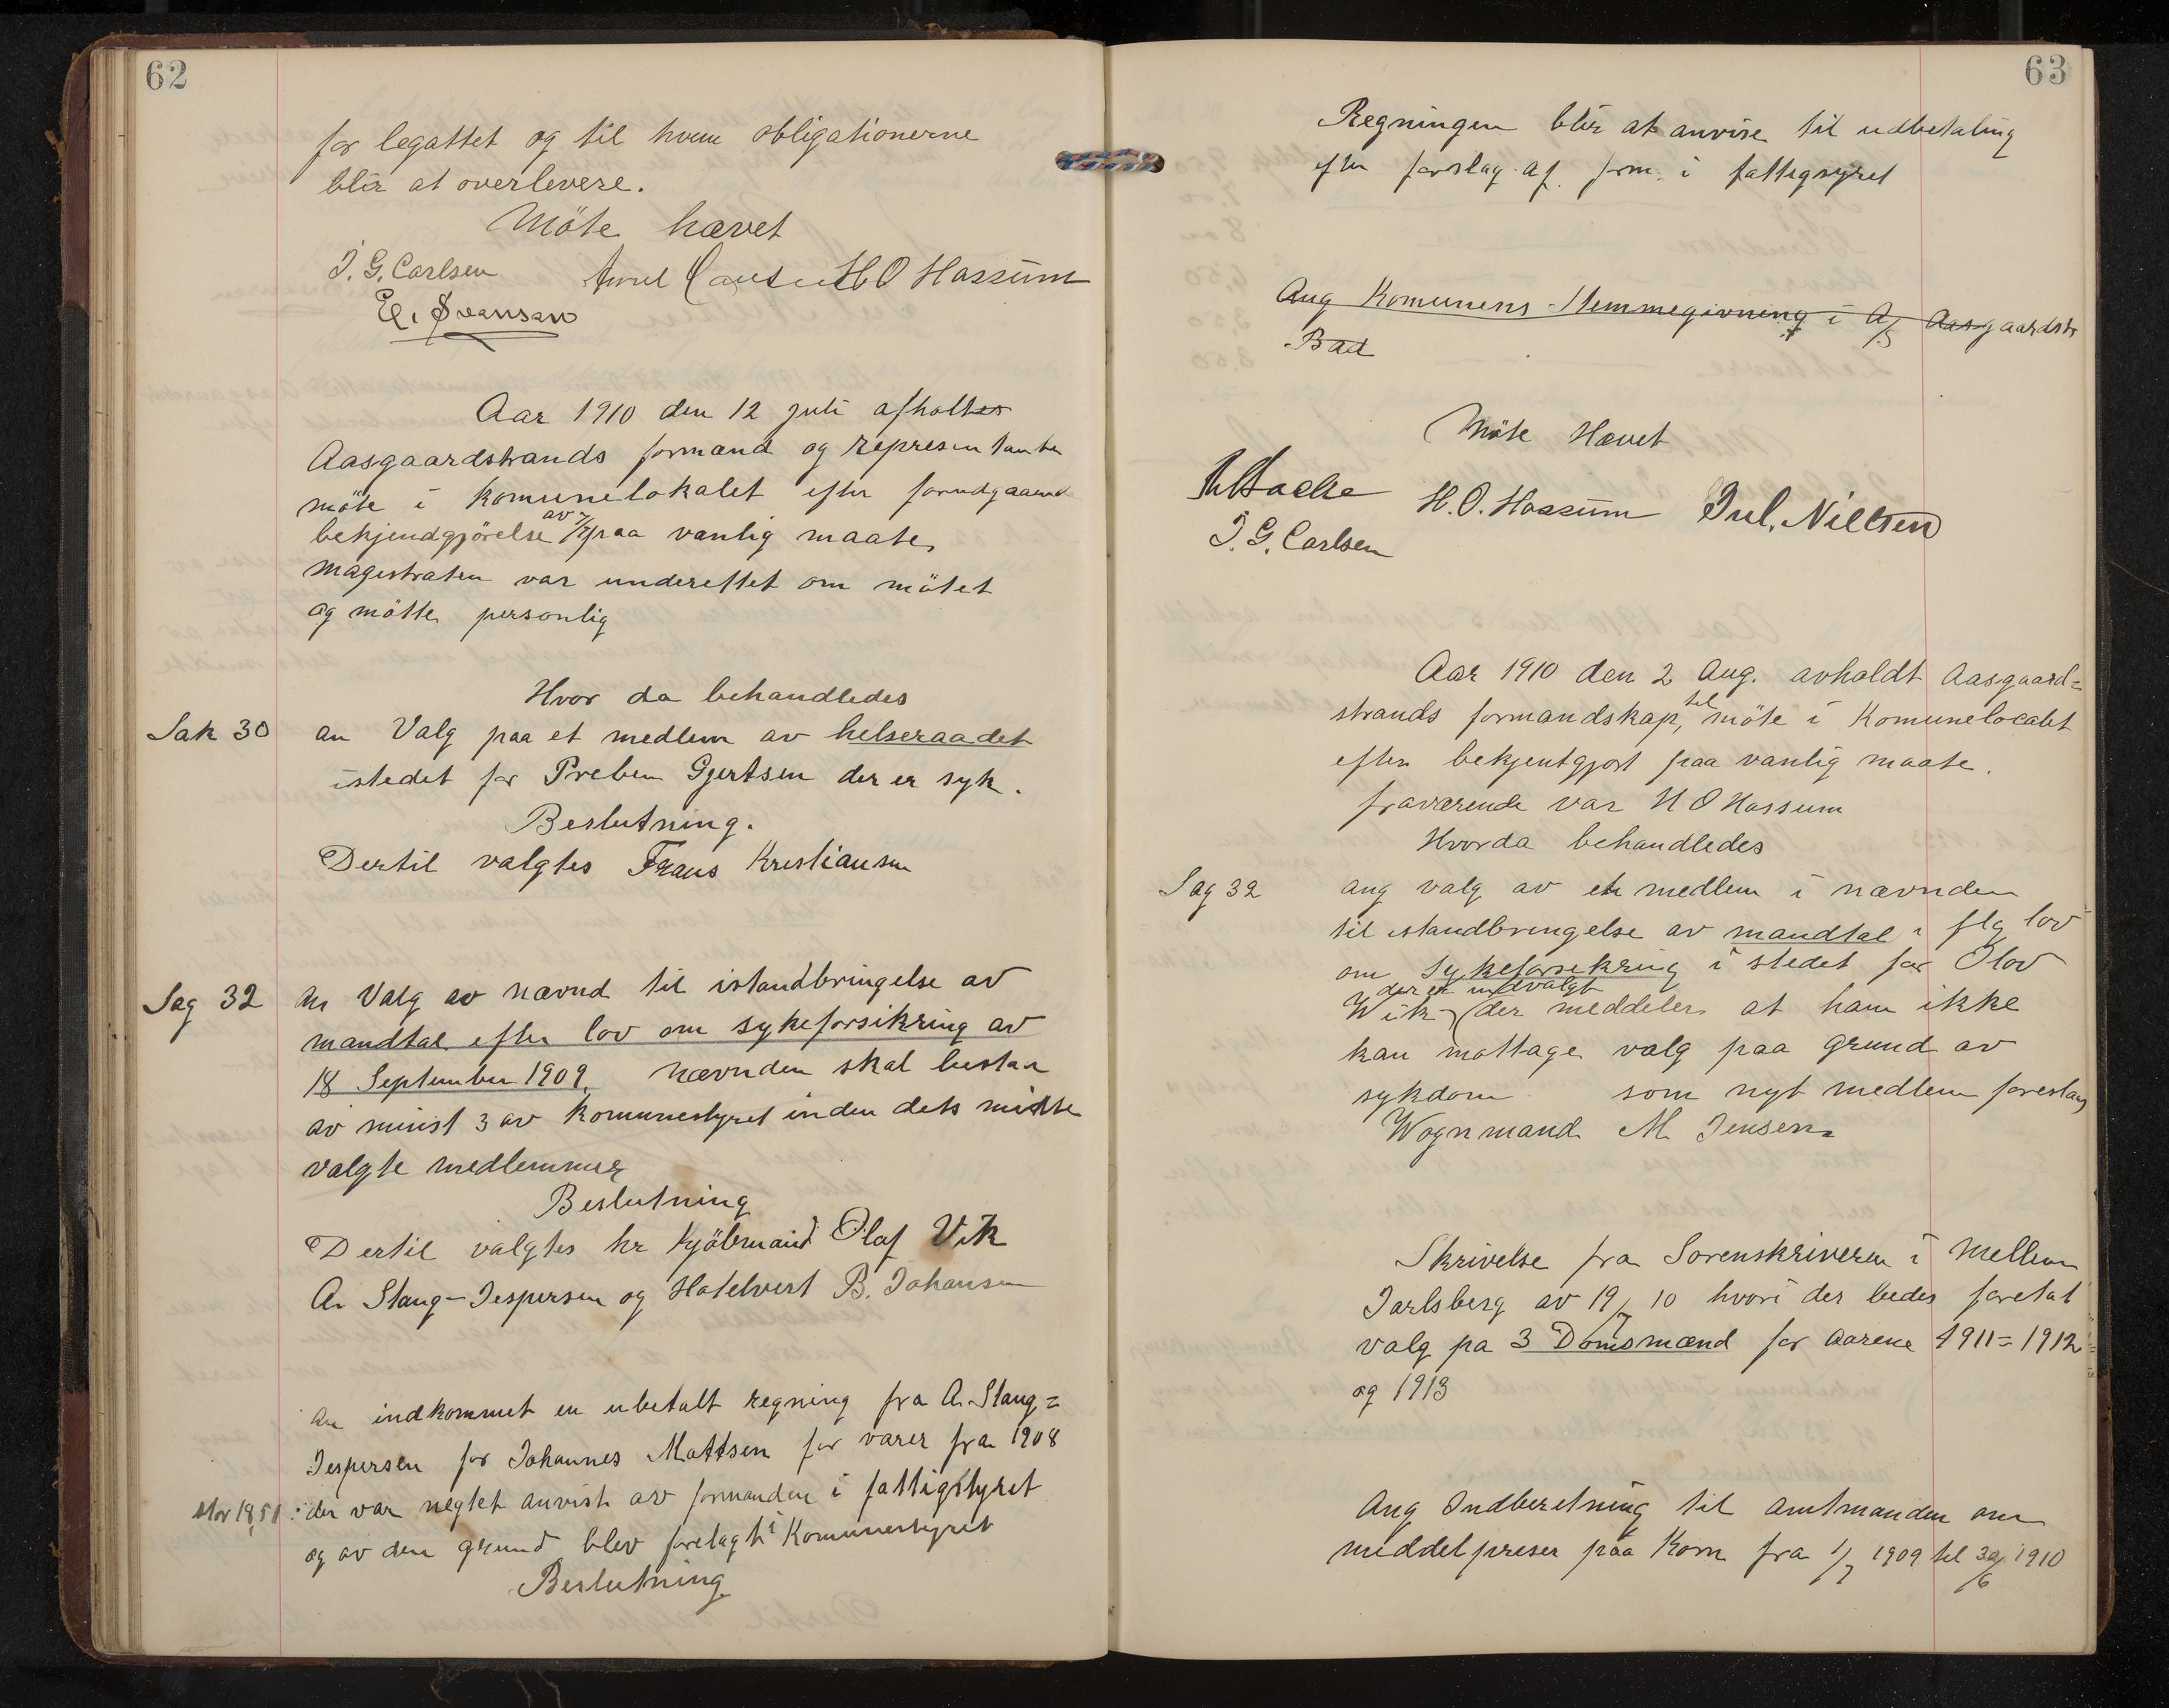 62
for legattet og til hvem obligationerne
blir at overlevere.
Möte hævet
J. G. Carlsen H O Hassum
E. Svensen
Aar 1910 den 12 juli afholtes
Aasgaardstrands formænd og representanter
möte i komunelokalet efter forudgaaend
bekjendgjörelse av 7/7 paa vanlig maate,
magistraten var underettet om mötet
og mötte personlig
Hvor da behandledes
Sak 30 an Valg paa et medlem av helseraadet
istedet for Preben Gjertsen der er syk.
Beslutning.
Dertil valgtes Frans Kristiansen
Sag 32 An Valg av nævnd til istandbringelse av
mandtal efter lov om sykeforsikring av
18 September 1909, nævnden skal bestaa
av minst 3 av komunestyret inden dets midte
valgte medlemmer
Beslutning
Dertil valgtes hr kjöbmand Olaf Vik
A. Stang-Jespersen og Hotelvert B. Johansen
an indkommet en ubetalt regning fra A. Stang=
Jespersen for Johannes Mattsen for varer fra 1908
stor 18,51 der var negtet anvist av formanden i fattigstyret
og av den grund blev forelagt i Komunestyret
Beslutning
63
Regningen blir at anvise til udbetaling
efter forslag af form. i fattigsyret
Ang Komunens Stemmegivning i A/S Aasgaardstr
Bad
Möte Hævet
H. O. Hassum Jul. Nilsen
J. G. Carlsen
Aar 1910 den 2 Aug. avholdt Aasgaard=
strands formandskap, til möte i Komunelocalet
efter bekjentgjort paa vanlig maate.
fraværende var H O Hassum
Hvorda behandledes
Sag 32 ang valg av et medlem i nævnden
til istandbringelse av mandtal i flg lov
om Sykeforsekring i stedet for Olov
der er indvalgt
Wik (der meddeler at han ikke
kan mottage valg paa grund av
sykdom som nyt medlem foreslaaes
Wognmand M Jensen
Skrivelse fra Sorenskriveren i Mellem
Jarlsberg av 19/7 10 hvori der bedes foretat
valg pa 3 Domsmænd for aarene 1911=1912
og 1913
Ang Indberetning til amtmanden om
middelpriser paa Korn fra 1/7 1909 til 30/6 1910